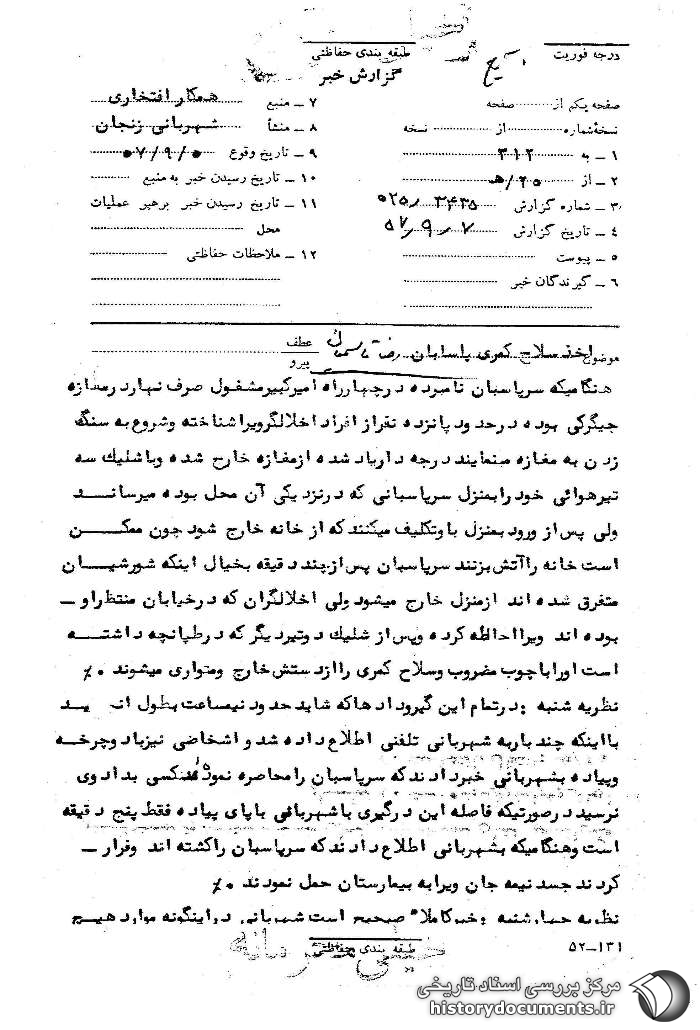 درجه فوریت
طبقه بندی حفاظتی
گزارش خبر
صفحه یکم از صفحه
نسخه شماره از نسخه
۱ ـ به ۳۱۲
۲ ـ از ۲۵/ هـ
۳ ـ شماره گزارش
۴ ـ تاریخ گزارش ۵۷/۹/۷
۵ ـ پیوست
۶ ـ گیرندگان خبر
۷ ـ منبع همکار افتخاری
۸ ـ منشأ شهربانی زنجان
۹ ـ تاریخ وقوع ۵۷/۹/۵
۱۰ ـ تاریخ رسیدن خبر به منبع
۱۱ ـ تاریخ رسیدن خبر برهبر عملیات
محل
۱۲ ـ ملاحظات حفاظتی
موضوع اخذ سلاح کمری پاسبان رضا
عطف
پیرو
هنگامیکه سرپاسبان نامبرده در چهارراه امیرکبیر مشغول صرف نهار در مغازه
جیگرکی بوده در حدود پانزده نفر از افراد اخلالگر ویرا شناخته و شروع به سنگ
زدن به مغازه مینمایند درجه دار یاد شده از مغازه خارج شده و با شلیک سه
تیر هوائی خود را بمنزل سرپاسبانی که در نزدیکی آن محل بوده میرساند
ولی پس از ورود بمنزل باو تکلیف میکنند که از خانه خارج شود چون ممکن
است خانه را آتش بزنند سرپاسبان پس از چند دقیقه بخیال اینکه شورشیان
متفرق شده اند از منزل خارج میشود ولی اخلالگران که در خیابان منتظر او ـ
بوده اند ویرا احاطه کرده و پس از شلیک دو تیر دیگر که در طپانچه داشته
است او را با چوب مضروب و سلاح کمری را از دستش خارج و متواری میشوند ٪
نظریه شنبه : در تمام این گیرودارها که شاید حدود نیمساعت بطول انجامید
با اینکه چند بار به شهربانی تلفنی اطلاع داده شد و اشخاصی نیز با دوچرخه
و پیاده بشهربانی خبر دادند که سرپاسبان را محاصره نموده اند کسی بداد وی
نرسید در صورتیکه فاصله این درگیری با شهربانی با پای پیاده فقط پنج دقیقه
است و هنگامیکه بشهربانی اطلاع دادند که سرپاسبان را کشته اند و فرار ـ
کردند جسد نیمه جان ویرا به بیمارستان حمل نمودند ٪
نظریه چهارشنبه : خبر کاملا" صحیح است شهربانی در اینگونه موارد هیچ
طبقه بندی حفاظتی
خیلی محرمانه
۵۲ـ۱۳۱
مرکز بررسی اسناد تاریخی
historydocuments.ir